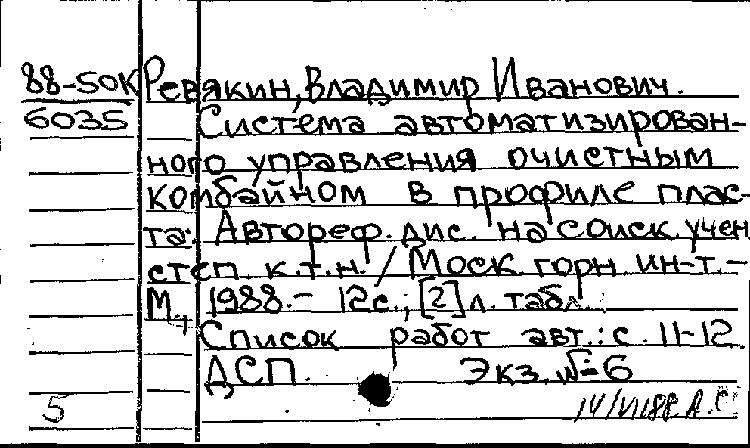 88-50К Ревякин, Владимир Иванович.
6035 Система автоматизирован-
ного управления очистным
комбайном в профиле плас-
та: Автореф. дис. на соиск. учен
степ. к.т.н. / Моск. горн. ин-т.-
М., 1988.- 12с.; [2] л. табл.
Список работ авт.: с. 11-12.
ДСП. Экз. №6
5